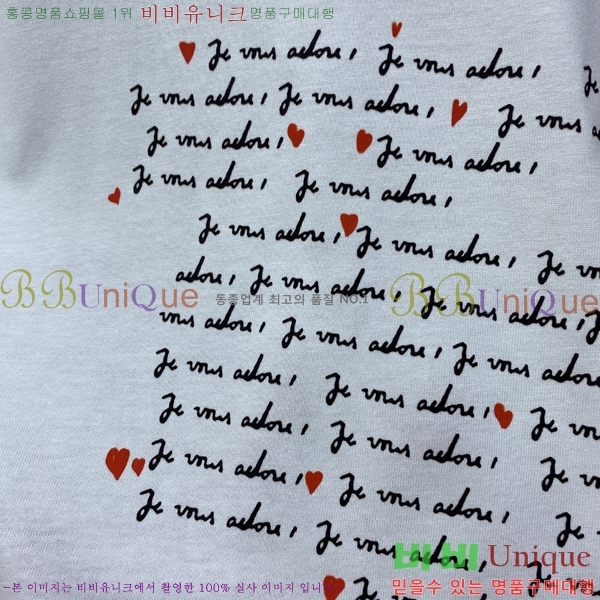 홍콩명품쇼핑몰 1위 비비유니크명품구매대행
Je vous adore, Je vous adore,
Je vous adore, Je vous adore, Je vous
Je vous adore, Je vous adore,
Je vous adore, Je vous adore,
Je vous adore, Je vous adore, Je vous
adore, Je vous adore, Je vous adore,
BBUniQue 동종업계 최고의 품질 NO.1 BBUniQue
vous adore, Je vous adore, Je vous adore,
Je vous adore, Je vous adore, Je vous
Je vous adore, Je vous adore, Je vous
Je vous adore, Je vous adore, Je
Je vous adore, Je vous adore,
비비 Unique
-본 이미지는 비비유니크에서 촬영한 100% 실사 이미지 입니다
믿을수 있는 명품구매대행